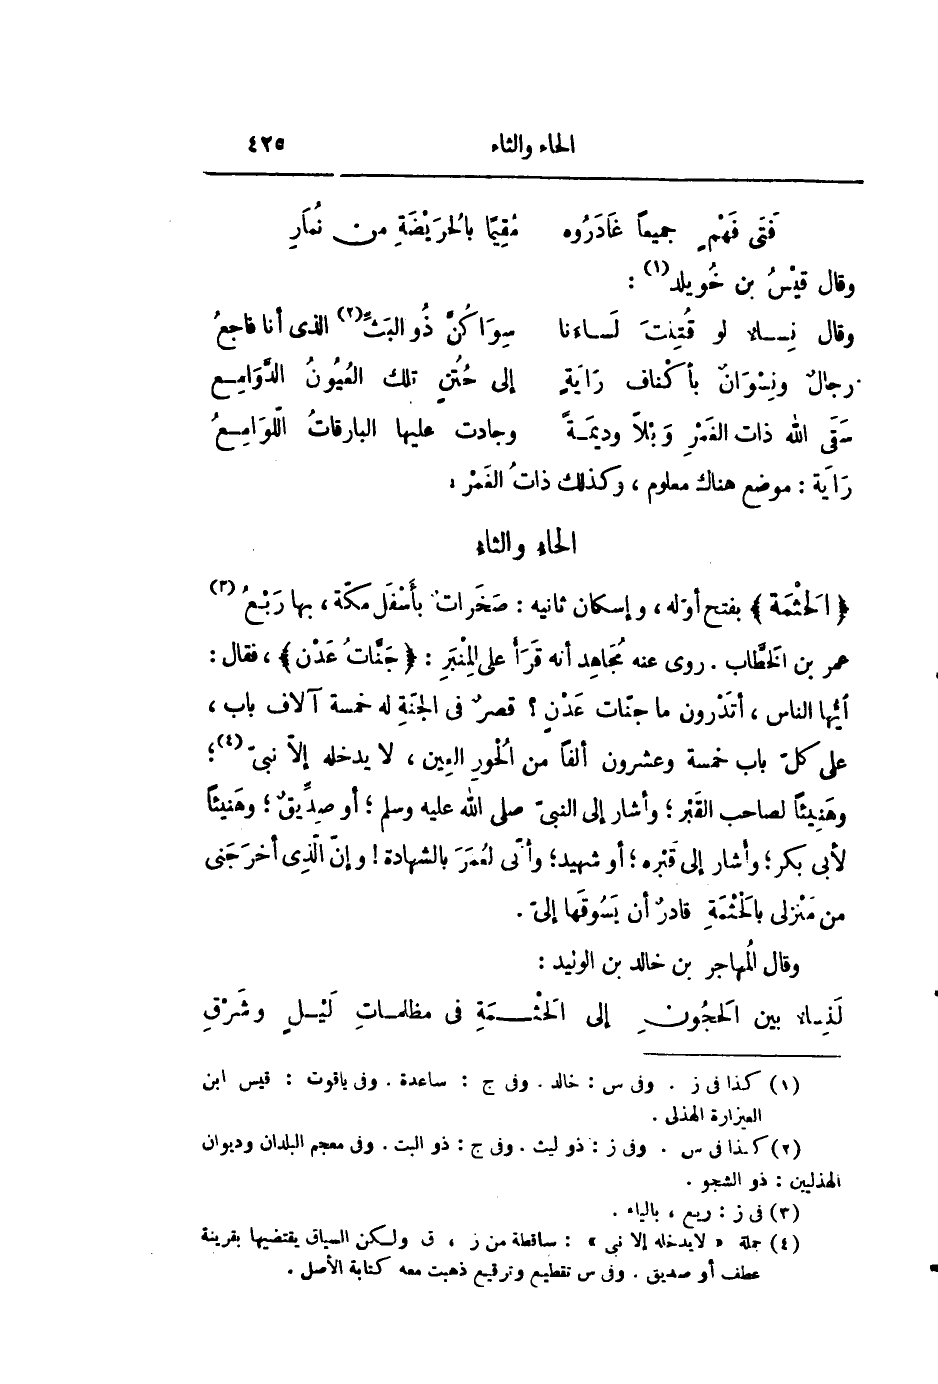 الحاء والثاء ٤٢٥
فَتَى فَهْمٍ جميعاً غَادَرُوه مُقِيمًا بالْحُرَيْضَةِ من نُمَارِ
وقال قَيْسُ بن خُويلد(١) :
وقال نِساء لو قُتِلتَ لَساءنا سِوَاكُنَّ ذُو البَثِّ(٢) الذى أنا فاجعُ
رجالٌ ونِسْوَانٌ بأكْناف رَايَةٍ إلى حُثُنٍ تلك العُيُونُ الدَّوَامِع
سَقَى الله ذات الغَمْرِ وَبْلاً وديمَةً وجادت عليها البارقاتُ اللّوَامِعُ
رَايَة : موضع هناك معلوم ، وكذلك ذاتُ الغَمْر .
الحاء والثاء
﴿ الحَثْمَة ﴾ بفتح أوّله ، وإسكان ثانيه : صَخَرات بأَسْفَل مكّة ، بها رَبْعُ(٣)
عمر بن الخطَّاب . روى عنه مُجَاهِد أنه قَرَأَ على المِنْبَرِ : ﴿ جَنَّاتُ عَدْن ﴾ ، فقال :
أيُّها الناس ، أتَدْرون ما جنّات عَدْنٍ ؟ قصرٌ فى الجَنةِ له خمسة آلاف باب ،
على كلّ باب خمسة وعشرون ألفًا من الْحُورِ العِين ، لا يدخله إلاّ نبىّ(٤) ؛
وهَنِيئًا لصاحب القَبْر ؛ وأشار إلى النبىّ صلى الله عليه وسلم ؛ أو صِدِّيقٌ ؛ وهَنيئًا
لأبى بكر ؛ وأشار إلى قَبْرِه ؛ أو شهيد ؛ وأنّى لعُمَرَ بالشهادة ! وإنّ الّذِى أخرَجَنى
من مَنْزلى بالحَثْمَةِ قادرٌ أن يَسُوقَها إلىّ .
وقال المُهاجر بن خالد بن الوليد :
لَنِساء بين الحَجُونِ إلى الحَثْمَةِ فى مظلمات لَيْلٍ وشَرْقِ
(١) كذا فى ز . وفى س : خالد . وفى ج : ساعدة . وفى ياقوت : قيس ابن
العيزارة الهذلى .
(٢) كذا فى س . وفى ز : ذو ليث . وفى ج : ذو البت . وفى معجم البلدان وديوان
الهذليين : ذو الشجو .
(٣) فى ز : ربيع ، بالياء .
(٤) جملة « لايدخله إلا نبى » : ساقطة من ز ، ق ولكن السياق يقتضيها بقرينة
عطف أو صديق . وفى س تقطيع وترقيع ذهبت معه كتابة الأصل .